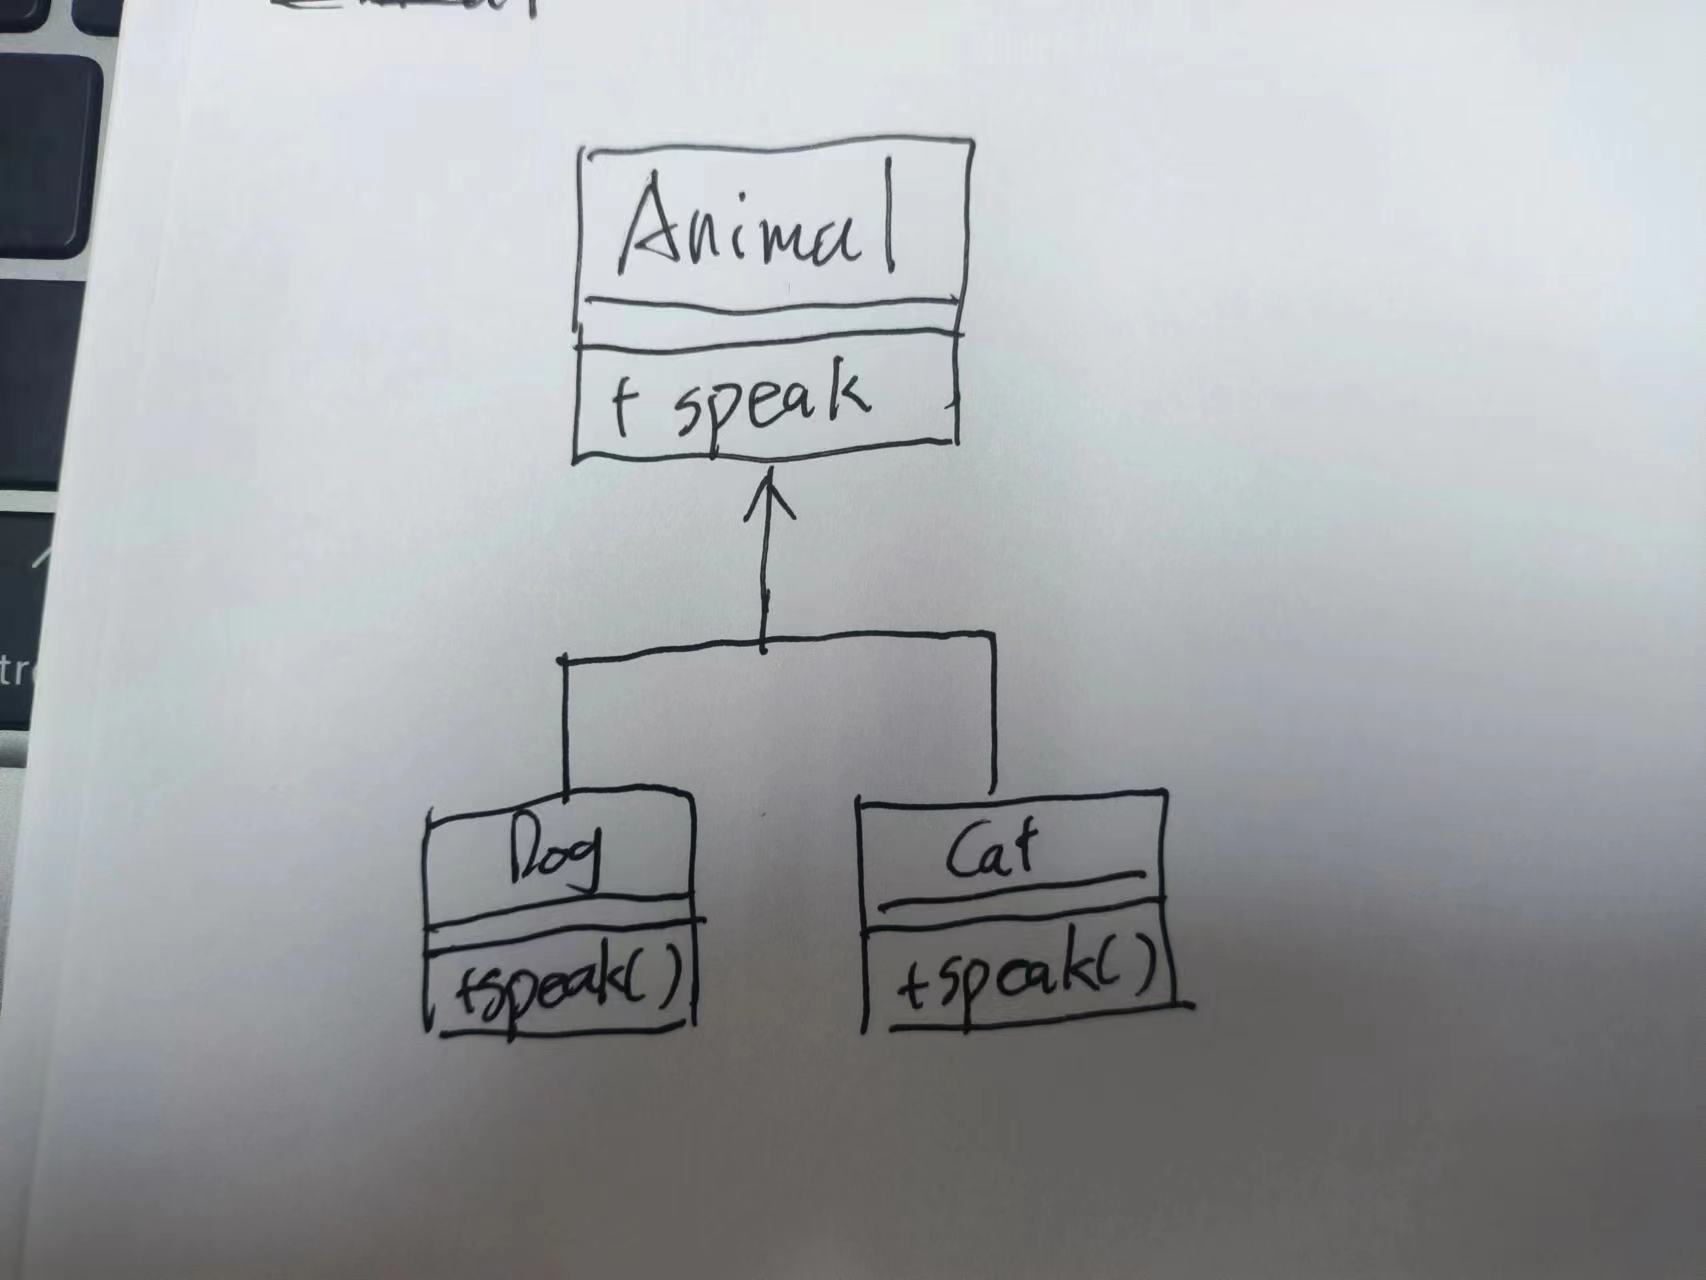 Animal
+ speak
Dog
+speak()
Cat
+speak()